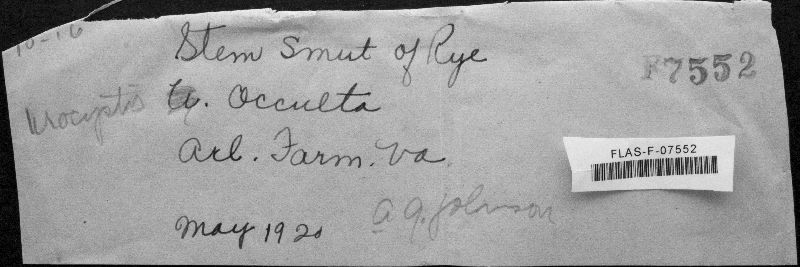 10-16
Stem Smut of Rye
F7552
Urocystis U. Occulta
Arl. Farm. Va.
FLAS-F-07552
May 1920
A. G. Johnson